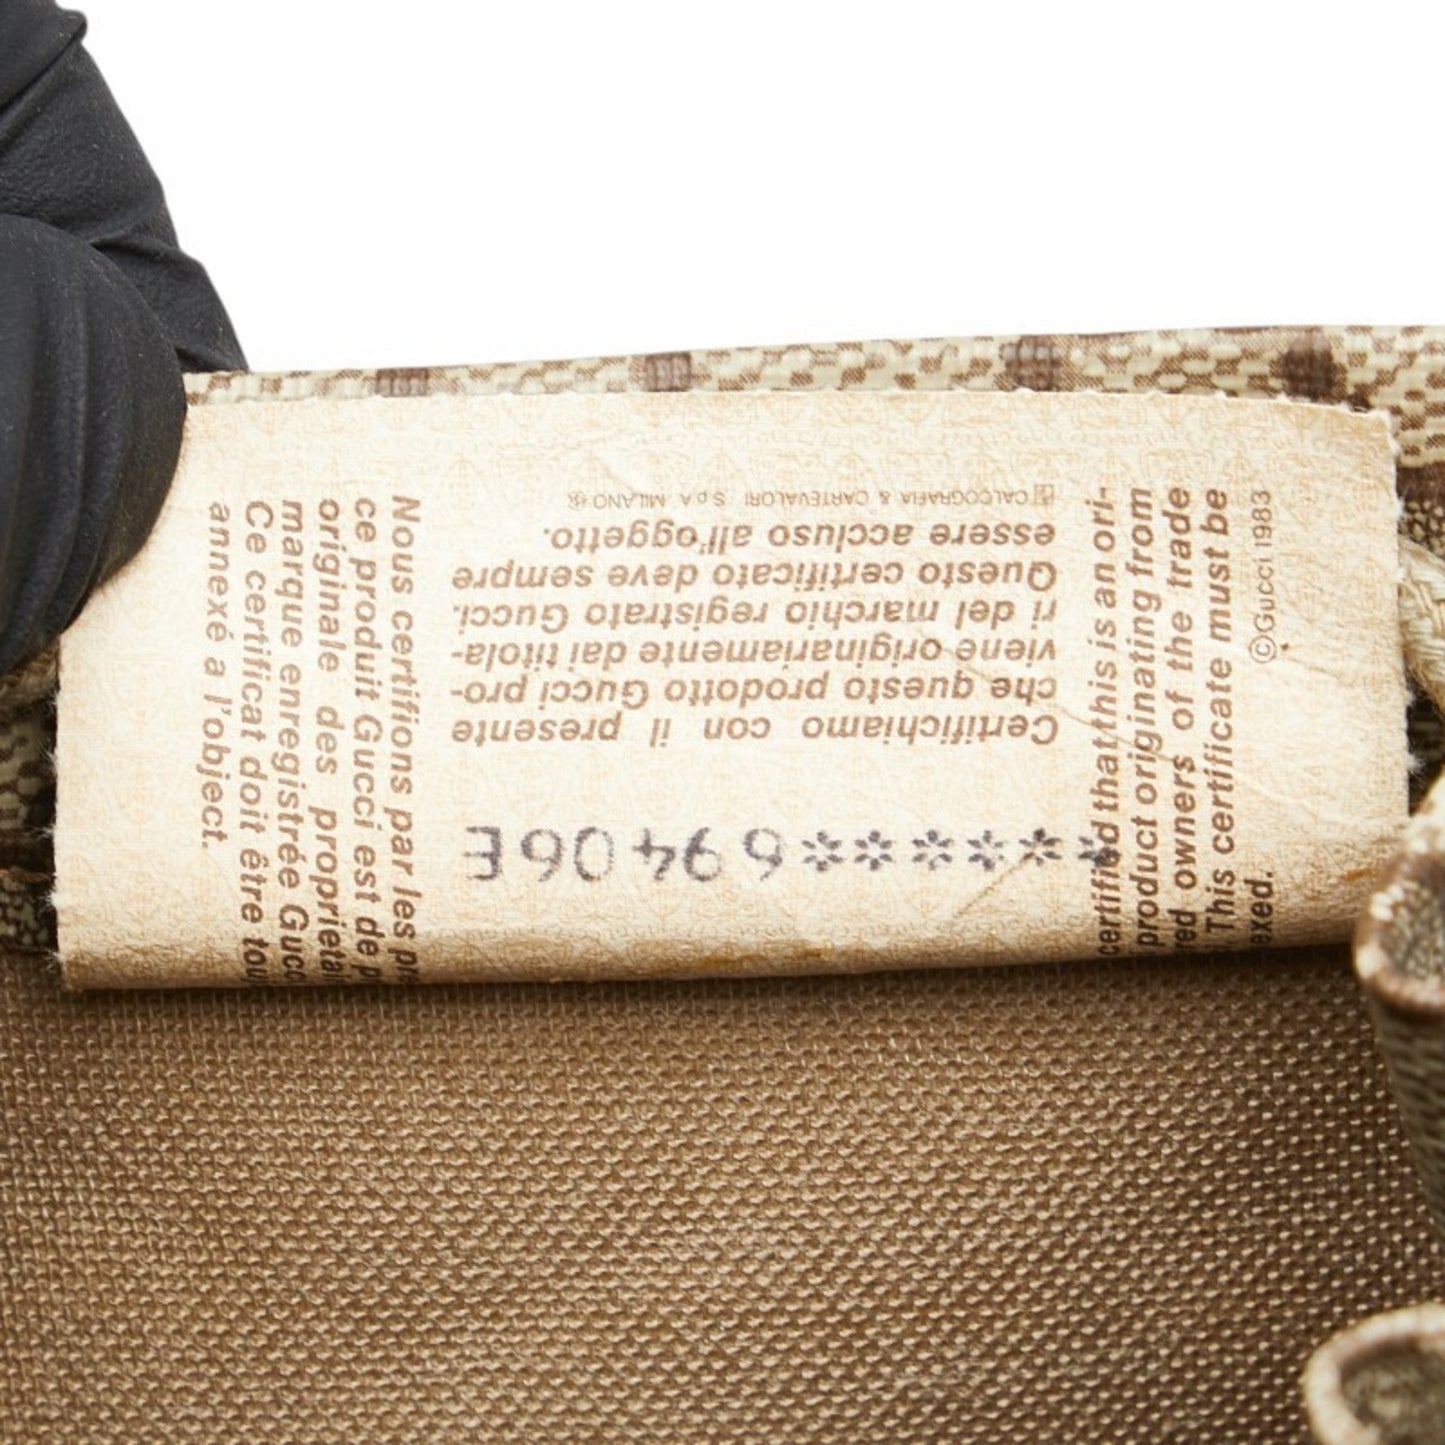 Certifichiamo con il presente
che questo prodotto Gucci pro-
viene originariamente dai titola-
ri del marchio registrato Gucci.
Questo certificato deve sempre
essere accluso all'oggetto.
CALCOGRAFIA & CARTEVALORI S.p.A. MILANO
Nous certifions par les pr
ce produit Gucci est de p
originale des proprietai
marque enregistrée Gucc
Ce certificat doit être tou
annexé a l'object.
certified that this is an ori-
product originating from
red owners of the trade
This certificate must be
exed.
©Gucci 1983